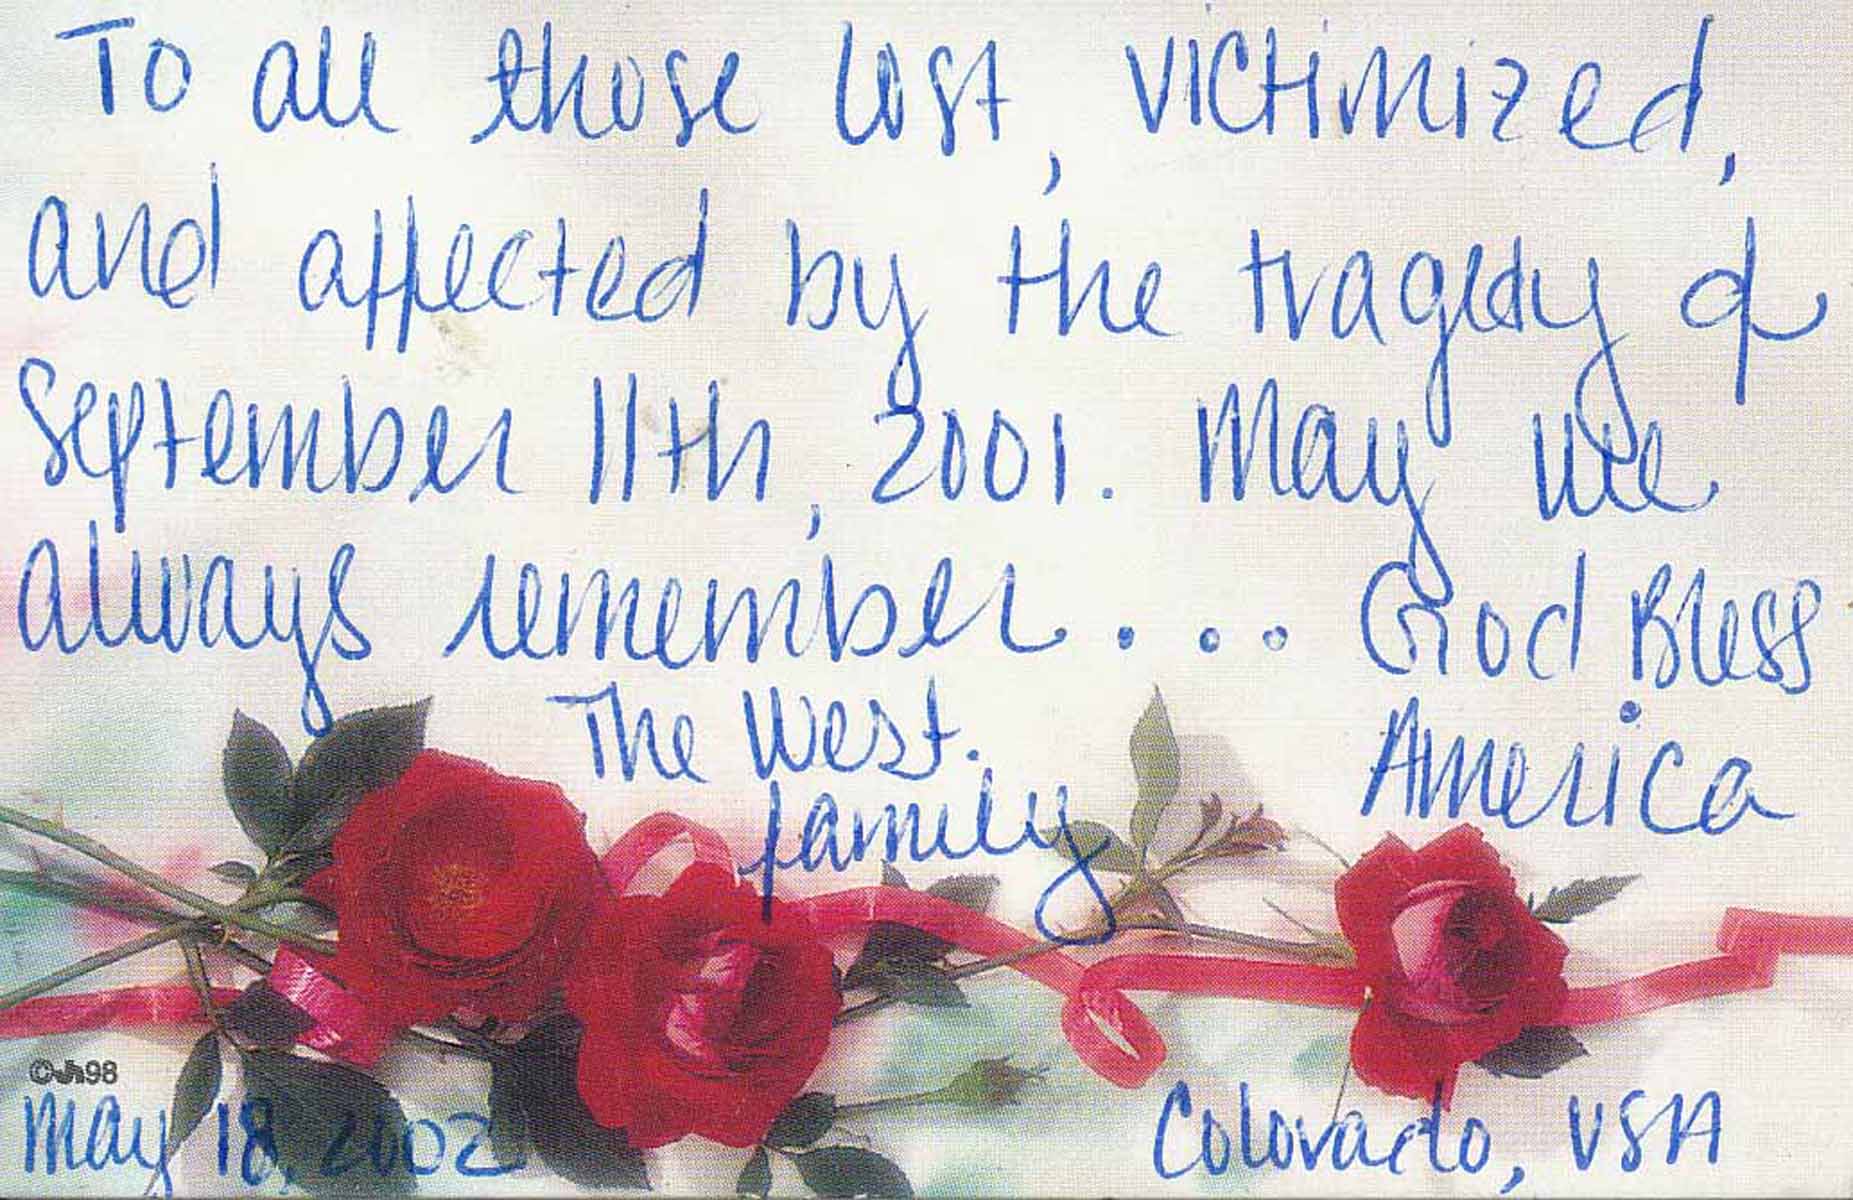 To all those lost, victimized,
and affected by the tragedy of
September 11th, 2001. May we
always remember... God Bless
America
The West.
family
©Jh98
May 18, 2002
Colorado, USA